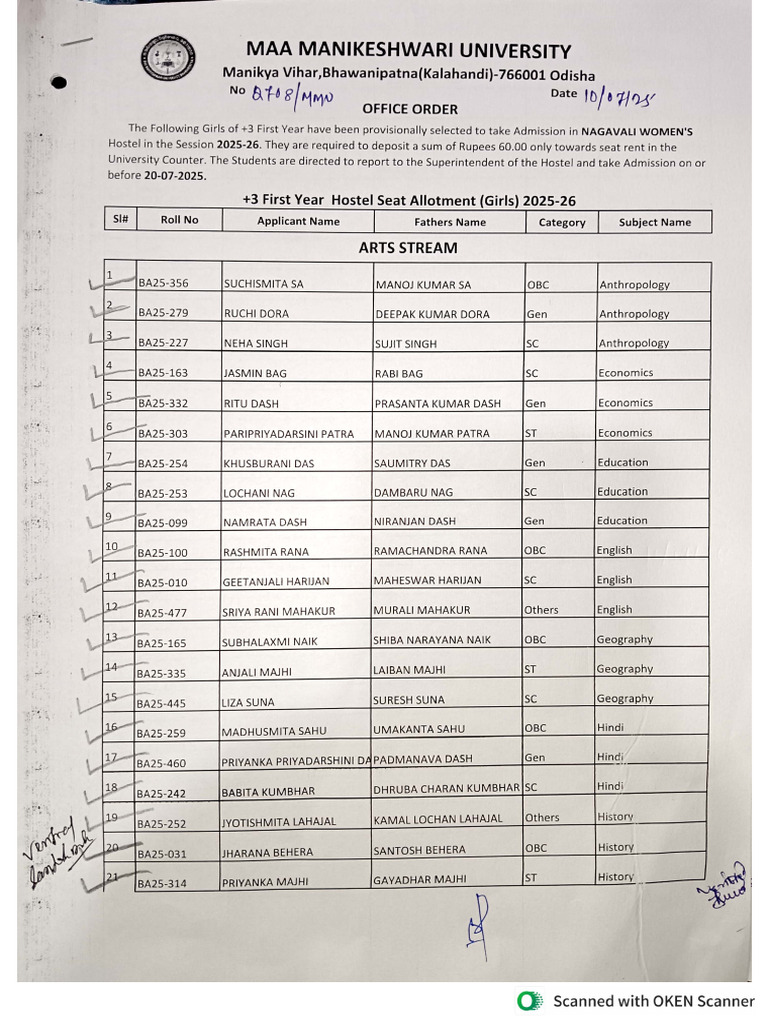 MAA MANIKESHWARI UNIVERSITY
Manikya Vihar,Bhawanipatna(Kalahandi)-766001 Odisha
No 2708/MMU Date 10/07/25
OFFICE ORDER
The Following Girls of +3 First Year have been provisionally selected to take Admission in NAGAVALI WOMEN'S
Hostel in the Session 2025-26. They are required to deposit a sum of Rupees 60.00 only towards seat rent in the
University Counter. The Students are directed to report to the Superintendent of the Hostel and take Admission on or
before 20-07-2025.
+3 First Year Hostel Seat Allotment (Girls) 2025-26
Sl# Roll No Applicant Name Fathers Name Category Subject Name
ARTS STREAM
1 BA25-356 SUCHISMITA SA MANOJ KUMAR SA OBC Anthropology
2 BA25-279 RUCHI DORA DEEPAK KUMAR DORA Gen Anthropology
3 BA25-227 NEHA SINGH SUJIT SINGH SC Anthropology
4 BA25-163 JASMIN BAG RABI BAG SC Economics
5 BA25-332 RITU DASH PRASANTA KUMAR DASH Gen Economics
6 BA25-303 PARIPRIYADARSINI PATRA MANOJ KUMAR PATRA ST Economics
7 BA25-254 KHUSBURANI DAS SAUMITRY DAS Gen Education
8 BA25-253 LOCHANI NAG DAMBARU NAG SC Education
9 BA25-099 NAMRATA DASH NIRANJAN DASH Gen Education
10 BA25-100 RASHMITA RANA RAMACHANDRA RANA OBC English
11 BA25-010 GEETANJALI HARIJAN MAHESWAR HARIJAN SC English
12 BA25-477 SRIYA RANI MAHAKUR MURALI MAHAKUR Others English
13 BA25-165 SUBHALAXMI NAIK SHIBA NARAYANA NAIK OBC Geography
14 BA25-335 ANJALI MAJHI LAIBAN MAJHI ST Geography
15 BA25-445 LIZA SUNA SURESH SUNA SC Geography
16 BA25-259 MADHUSMITA SAHU UMAKANTA SAHU OBC Hindi
17 BA25-460 PRIYANKA PRIYADARSHINI DA PADMANAVA DASH Gen Hindi
18 BA25-242 BABITA KUMBHAR DHRUBA CHARAN KUMBHAR SC Hindi
19 BA25-252 JYOTISHMITA LAHAJAL KAMAL LOCHAN LAHAJAL Others History
20 BA25-031 JHARANA BEHERA SANTOSH BEHERA OBC History
21 BA25-314 PRIYANKA MAJHI GAYADHAR MAJHI ST History
Scanned with OKEN Scanner